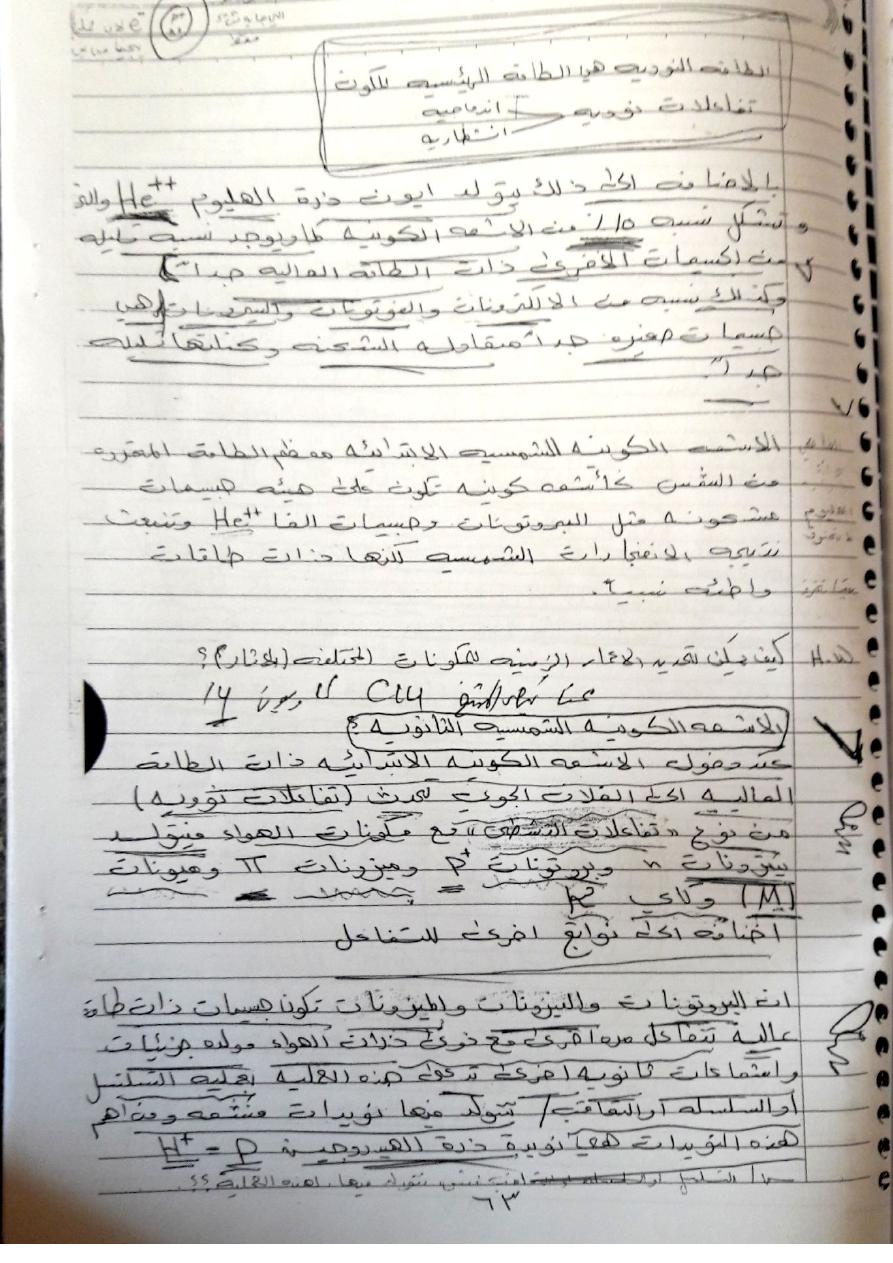 فقط
الطاقه النوويه هي الطاقه الرئيسيه للكون
تفاعلات نوويه اندماجيه
انشطاريه
بالاضافه الى ذلك يتولد ايون ذرة الهليوم He++ والتي
وتشكل نسبه 10٪ من الاشعه الكونيه كما ويوجد نسبه قليله
من الجسيمات الاخرى ذات الطاقه العاليه جداً
وكذلك نسبه من الالكترونات والفوتونات والنيوترينات (هي
جسيمات صغيره جداً متعادله الشحنه وكتلتها قليله
جداً).
الاشعه الكونيه الشمسيه الابتدائيه معظم الطاقه المحرره
من الشمس كأشعه كونيه تكون على هيئه جسيمات
مشحونه مثل البروتونات وجسيمات الفا He++ وتنبعث
نتيجه الانفجارات الشمسيه لكنها ذات طاقات
واطئه نسبياً.
H.W كيف يمكن تحديد الاعمار الزمنيه للمكونات المختلفه (الاثار)؟
C14 كاربون 14
الاشعه الكونيه الشمسيه الثانويه:
عند دخول الاشعه الكونيه الابتدائيه ذات الطاقه
العاليه الى الغلاف الجوي تحدث (تفاعلات نوويه)
من نوع "تفاعلات التشظي" مع مكونات الهواء فيتولد
نيترونات n وبروتونات P+ وميزونات π وميونات
(M) وكاي K
اضافه الى نواتج اخرى للتفاعل
ان البروتونات والنيترونات والميزونات تكون جسيمات ذات طاقة
عاليه تتفاعل مره اخرى مع نوى ذرات الهواء مولده جزيئات
واشعاعات ثانويه اخرى تدعى هذه العمليه بعمليه التسلسل
او السلسله او التعاقب/ تتولد فيها نويدات مشعه ومن اهم
هذه النويدات هي نويدة ذرة الهيدروجين H+ = P
س/ التسلسل او السلسله
٦٣